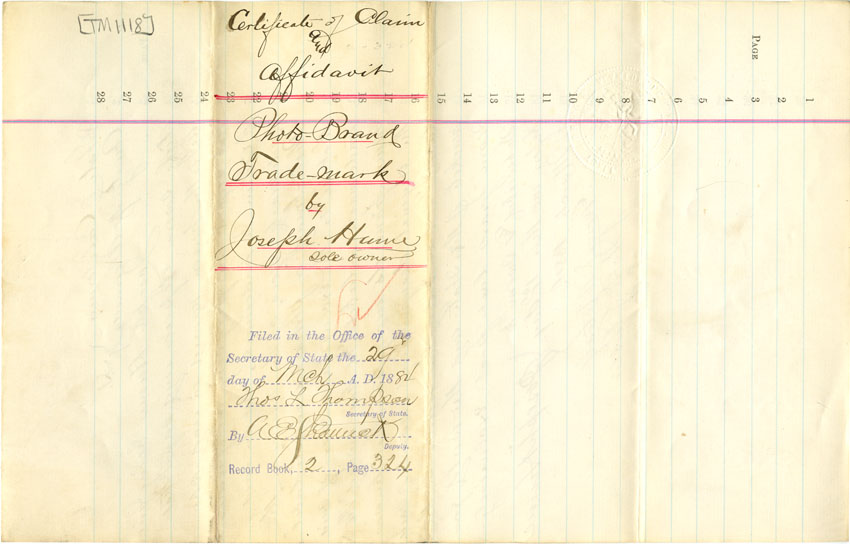 [TM1118]
Certificate of Claim
and
Affidavit
Photo-Brand
Trade-mark
by
Joseph Hume
Sole owner
Filed in the Office of the
Secretary of State the 29"
day of Mch A. D. 188
Thos L Thompson
Secretary of State.
By A E
Deputy.
Record Book, 2, Page 324
PAGE
1
2
3
4
5
6
7
8
9
10
11
12
13
14
15
16
17
18
19
20
21
22
23
24
25
26
27
28